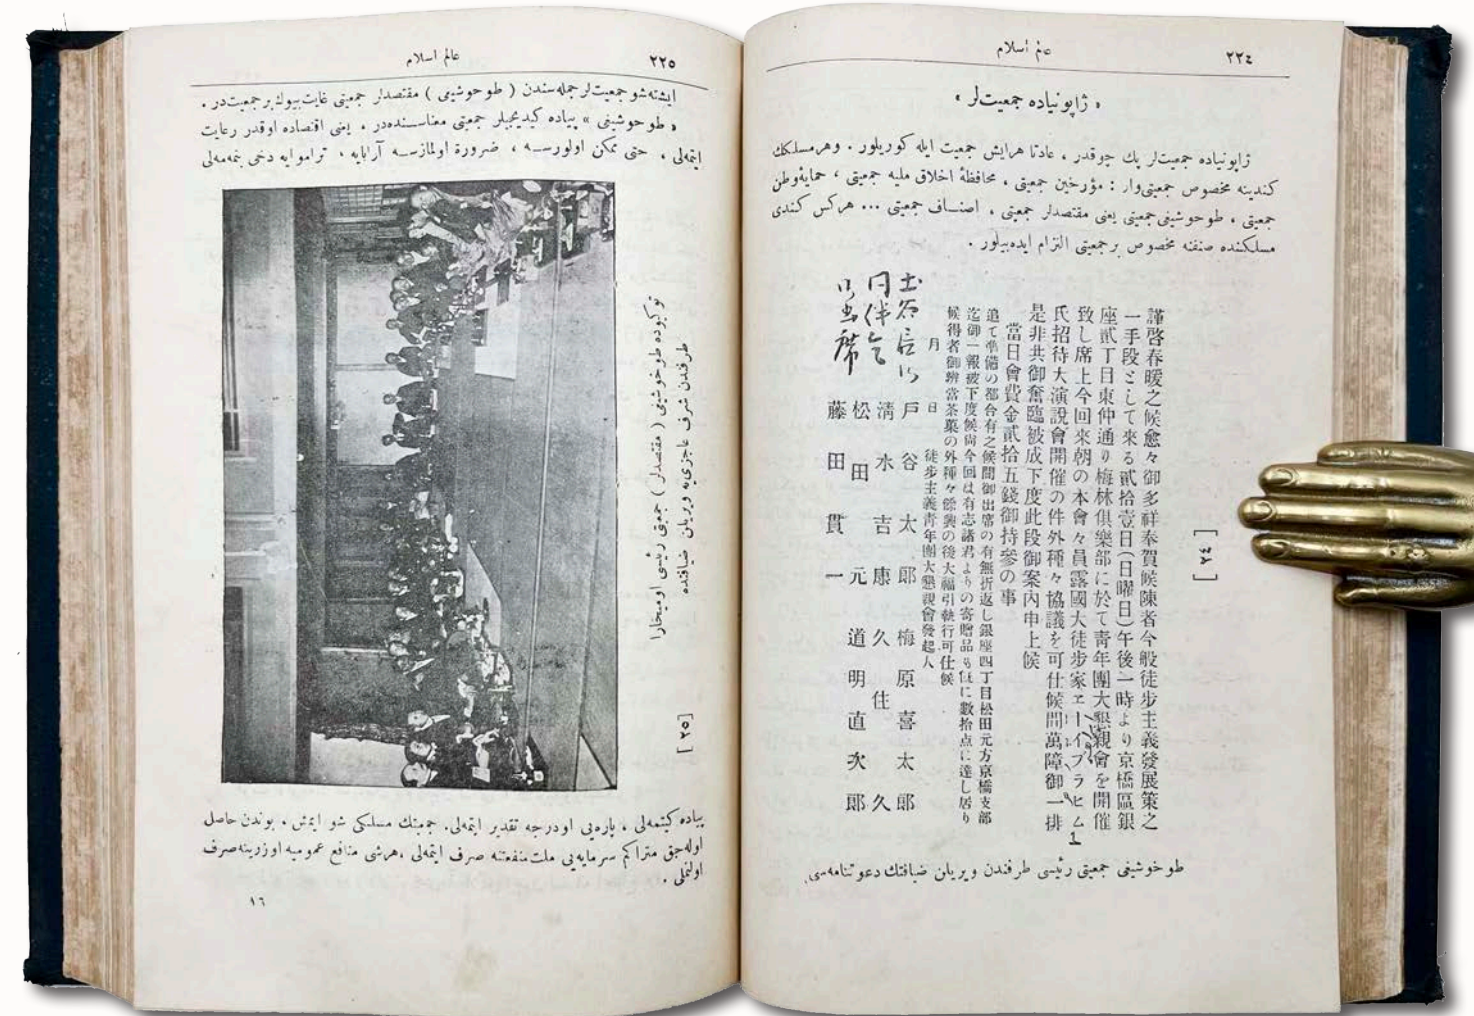 ٢٢٤
عالم اسلام
« ژاپونیاده جمعیت‌لر »
ژاپونیاده جمعیت‌لر پك چوقدر ، عادتا هرایش جمعیت ایله كوریلور . وهرمسلكك
كندینه مخصوص جمعیتی‌وار : مؤرخین جمعیتی ، محافظهٔ اخلاق ملیه جمعیتی ، حمایهٔ‌وطن
جمعیتی ، طوخوشیفی‌جمعیتی یعنی مقتصدلر جمعیتی ، اصنـاف جمعیتی ... هركس كندی
مسلكنده صنفنه مخصوص برجمعیتی التزام ایده‌بیلور .
謹啓春暖之候愈々御多祥奉賀候陳者今般徒步主義發展策之
一手段として來る貳拾壹日(日曜日)午後一時より京橋區銀
座貳丁目東仲通り梅林俱樂部に於て靑年團大懇親會を開催
致し席上今回來朝の本會々員露國大徒步家エーイブラヒム
氏招待大演說會開催の件外種々協議を可仕候間萬障御一排
是非共御奮臨被成下度此段御案內申上候
當日會費金貳拾五錢御持參の事
追て準備の都合有之候間御出席の有無折返し銀座四丁目松田元方京橋支部
迄御一報被下度候尙今回は有志諸君よりの寄贈品も旣に數拾点に達し居り
候得者御辨當茶菓の外種々餘興の後大福引執行可仕候
月 日 徒步主義靑年團大懇親會發起人
戶谷太郞 梅原喜太郞
淸水吉康 久住久
松田元 道明直次郞
藤田貫一
[ ٢٤ ]
طوخوشیفی جمعیتی رئیسی طرفندن ویریلن ضیافتك دعوتنامه‌سی
٢٢٥
عالم اسلام
ایشته‌شو جمعیت‌لر جمله‌سندن ( طوخوشیفی ) مقتصدلر جمعیتی غایت‌بیوك برجمعیت‌در .
« طوخوشیفی » پیاده كیدیجیلر جمعیتی معناسـنده‌در ، یعنی اقتصاده اوقدر رعایت
ایتمه‌لی ، حتی ممكن اولورسـه ، ضرورة اولمازسـه آرابایه ، تراموایه دخی بنمه‌مه‌لی
توكیوده طوخوشیفی ( مقتصدلر ) جمعیتی رئیسی اومیخارا
طرفندن شرف عاجزی‌یه ویریلن ضیافتده
[ ٢٥ ]
پیاده كیتمه‌لی ، پاره‌یی اودرجه تقدیر ایتمه‌لی. جمعیتك مسلكی شو ایمش . بوندن حاصل
اوله‌جق متراكم سرمایه‌یی ملت‌منفعتنه صرف ایتمه‌لی ،هرشی منافع عمومیه اوزرینه‌صرف
اولنملی .
١٦